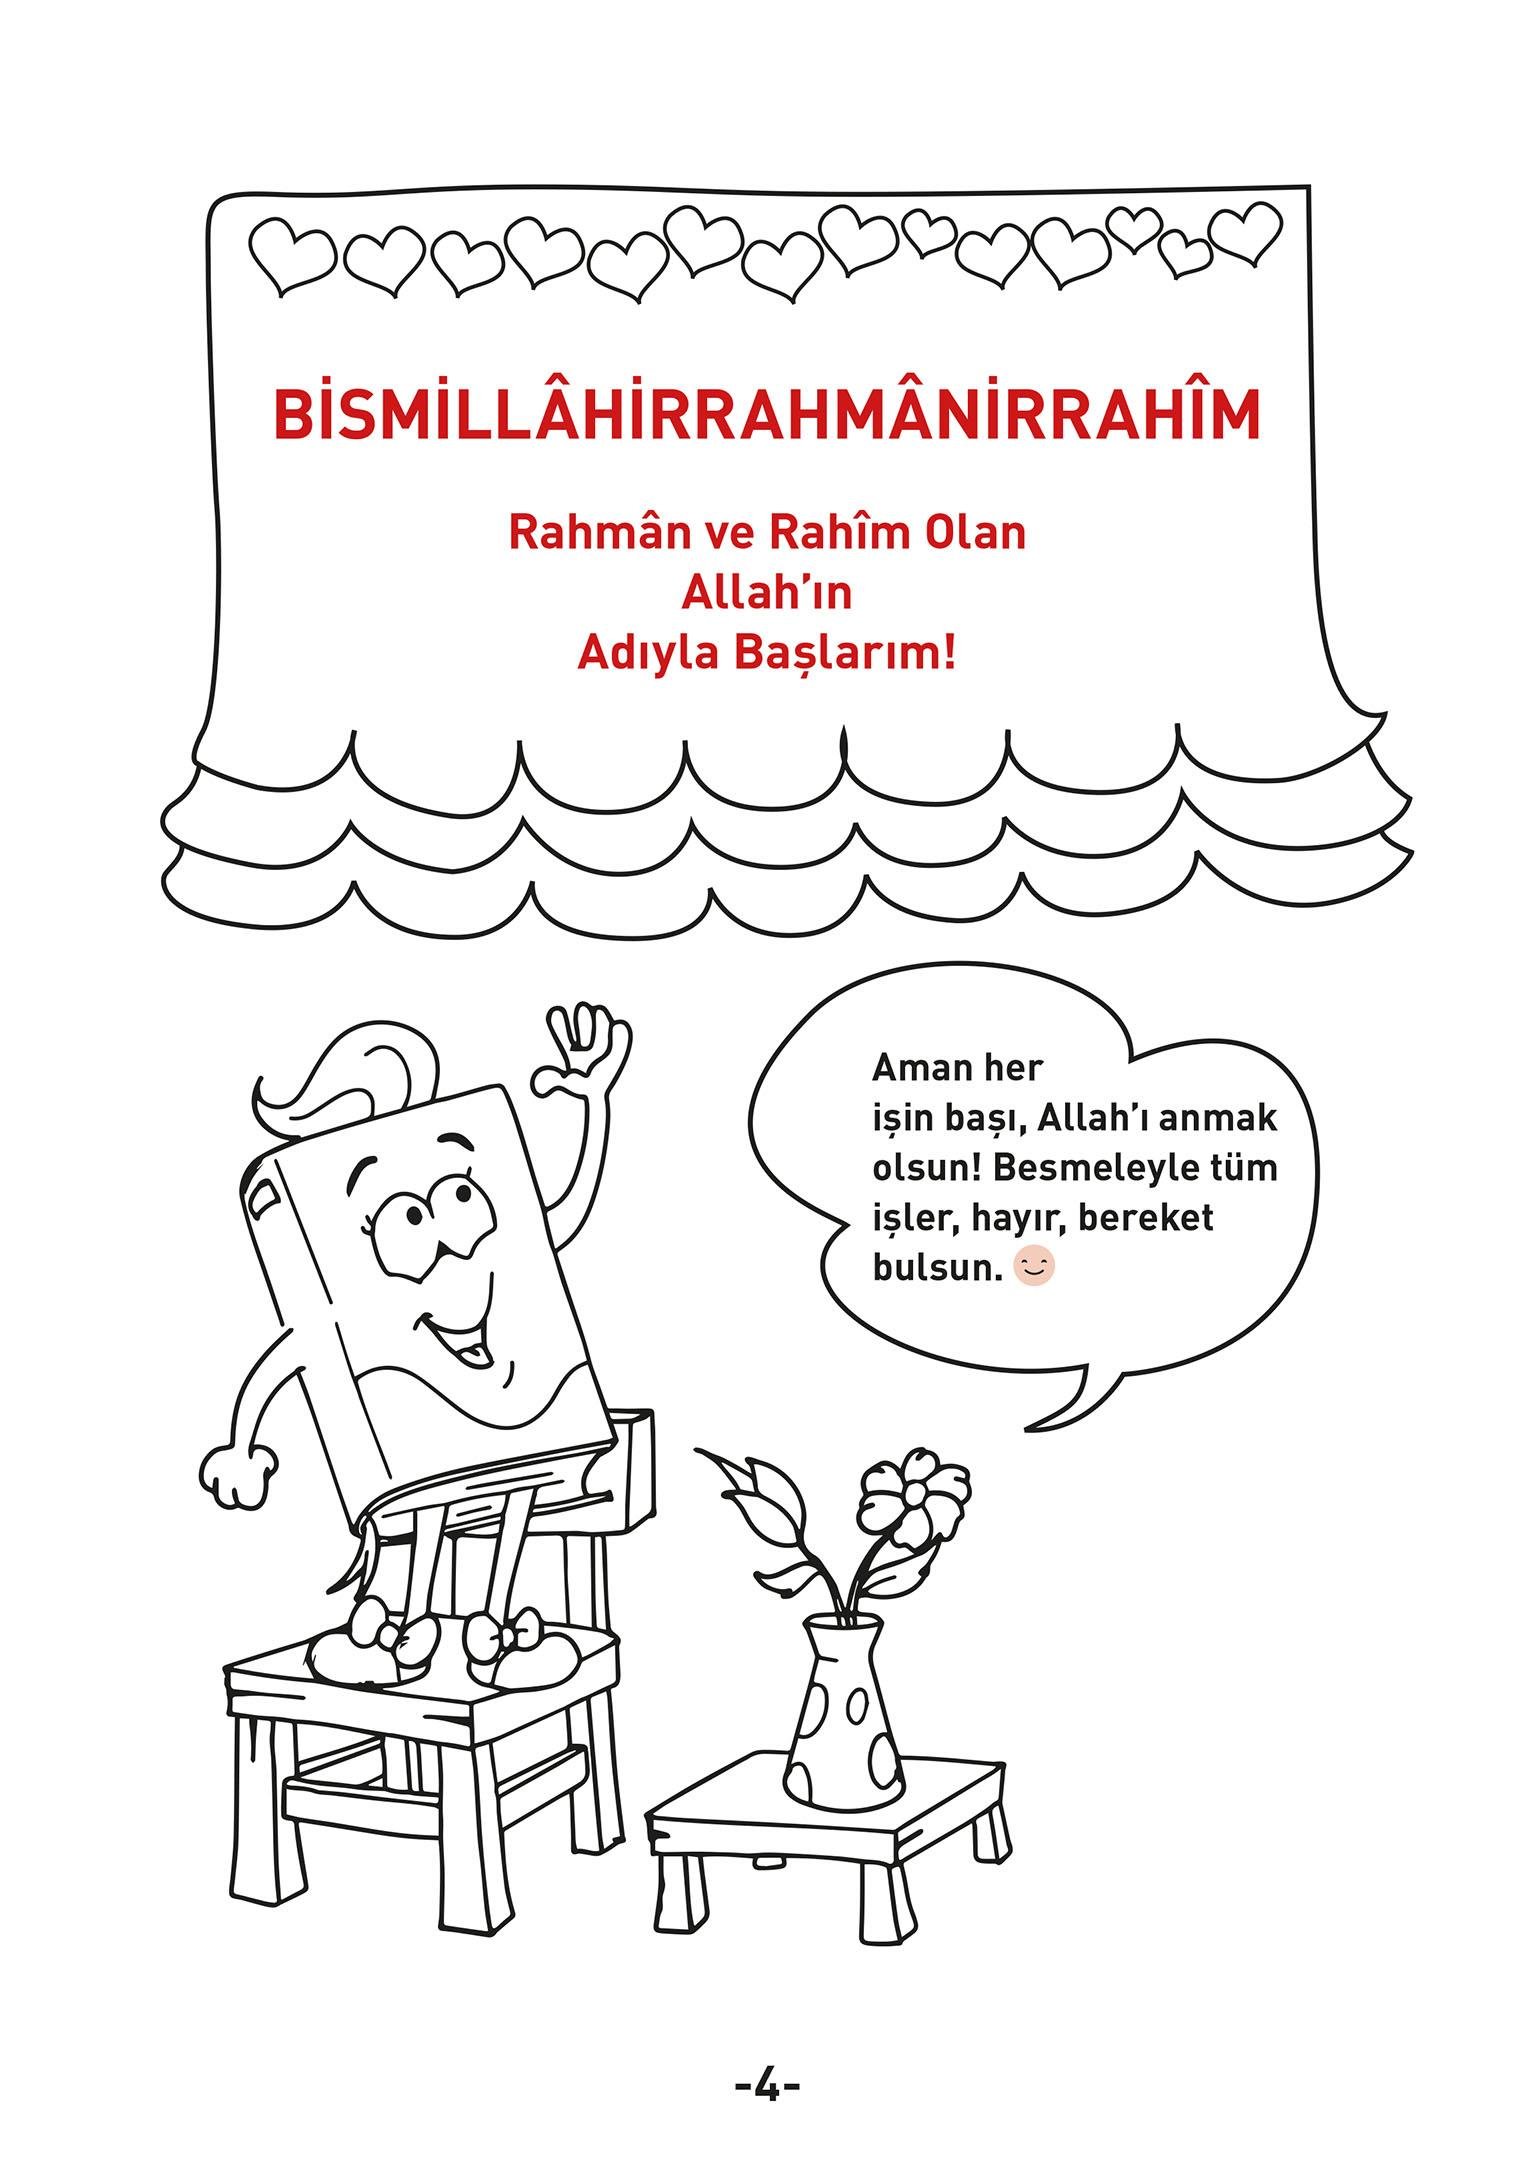 BİSMİLLÂHİRRAHMÂNİRRAHÎM
Rahmân ve Rahîm Olan
Allah’ın
Adıyla Başlarım!
Aman her
işin başı, Allah’ı anmak
olsun! Besmeleyle tüm
işler, hayır, bereket
bulsun.
-4-